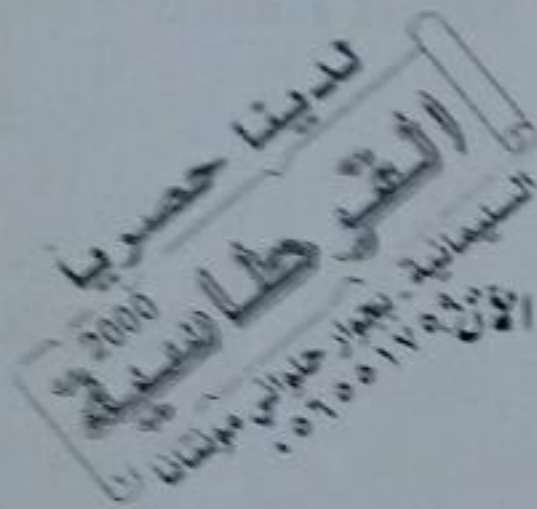 لدينا حصريا
القرطاسية
2000
السليمانية - بجوار حلواني مولتان
الآن